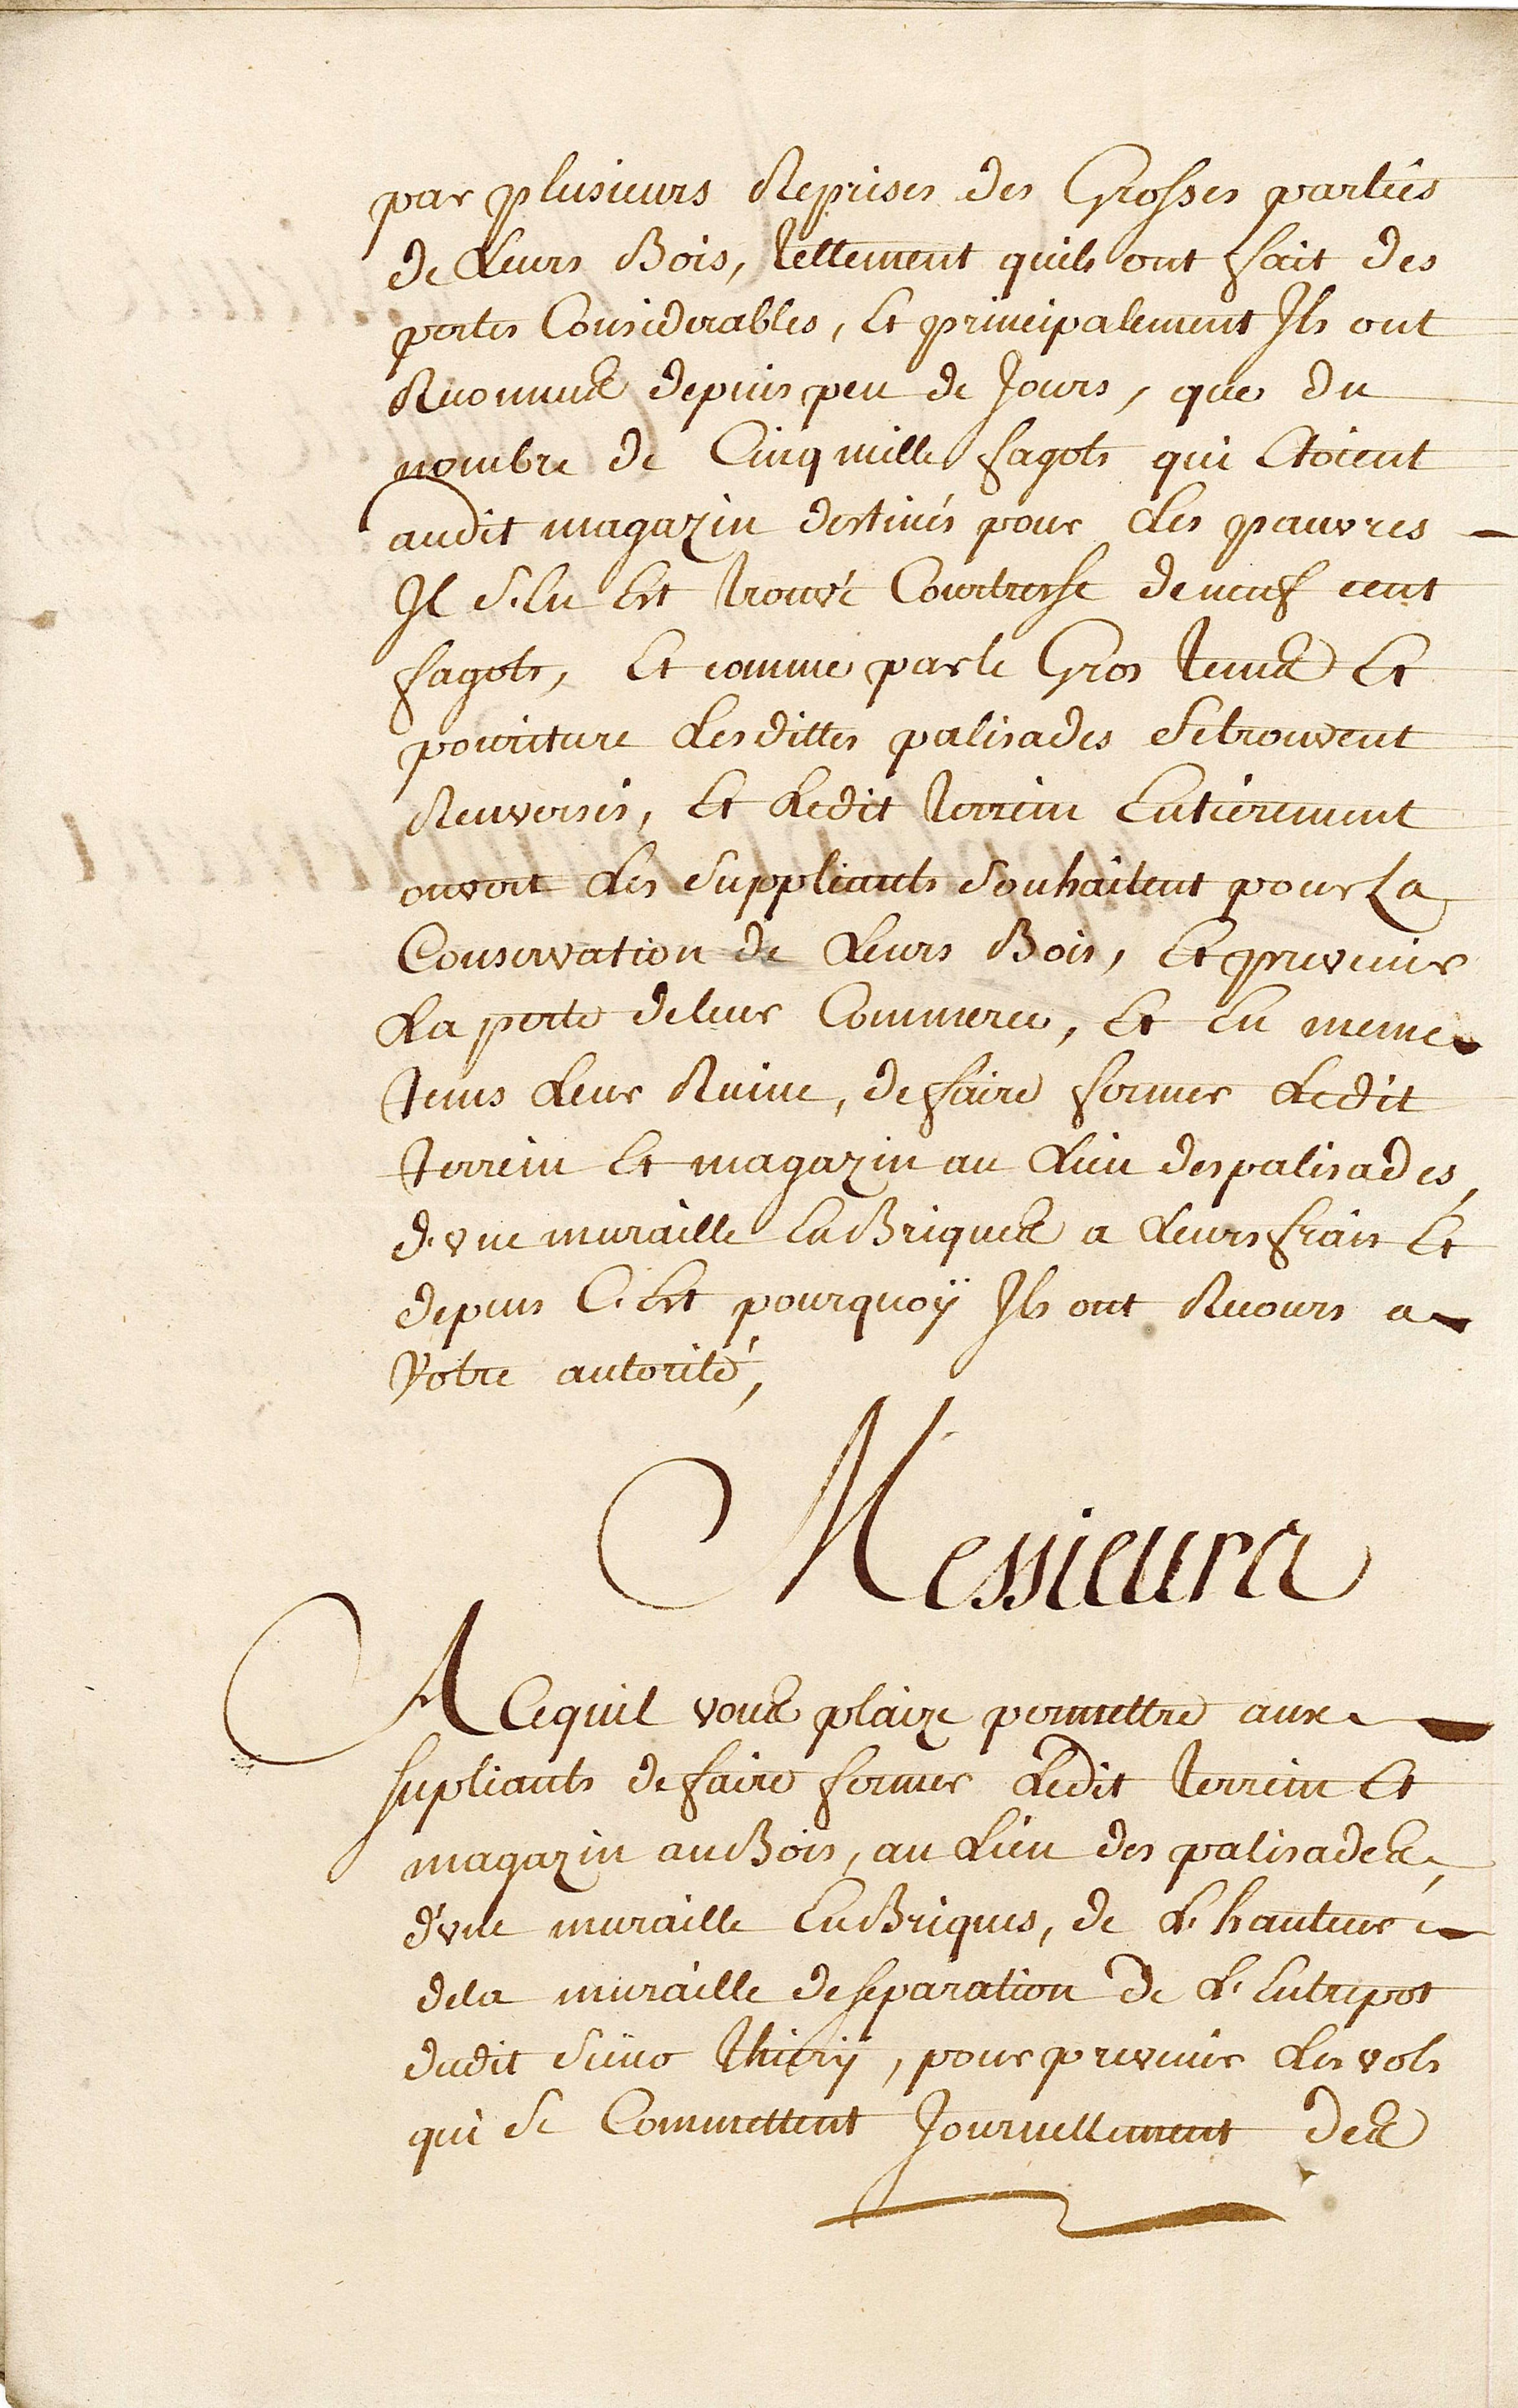 par plusieurs Reprises des Grosses parties
de Leurs Bois, tellement quils ont fait des
pertes Considerables, Et principalement Ils ont
Reconnus depuis peu de Jours, que du
nombre de Cinq mille fagots qui Etoient
audit magazin destinés pour Les pauvres
Il S'En Est trouvé Courtresse de neuf cent
fagots, Et comme par le Gros tems Et
pouriture Lesdittes palisades Se trouvent
Renversés, Et Ledit terrein Entierement
ouvert Les Suppliants Souhaitent pour La
Conservation de Leurs Bois, Et prevenir
La perte de leur Commerce, Et En meme
tems Leur Ruine, de faire fermer Ledit
terrein Et magazin au Lieu des palisades,
d'vne muraille En Briques a Leurs frais Et
depens C'Est pourquoÿ Ils ont Recours a
Votre autorité,
Messieurs
A Cequil vous plaize permettre aux
supliants de faire fermer Ledit terrein Et
magazin au Bois, au Lieu des palisades,
d'vne muraille En Briques, de L'hauteur
dela muraille de separation de L'Entrepot
dudit Sieur Thierÿ, pour prevenir Les vols
qui Se Commettent Journellement des